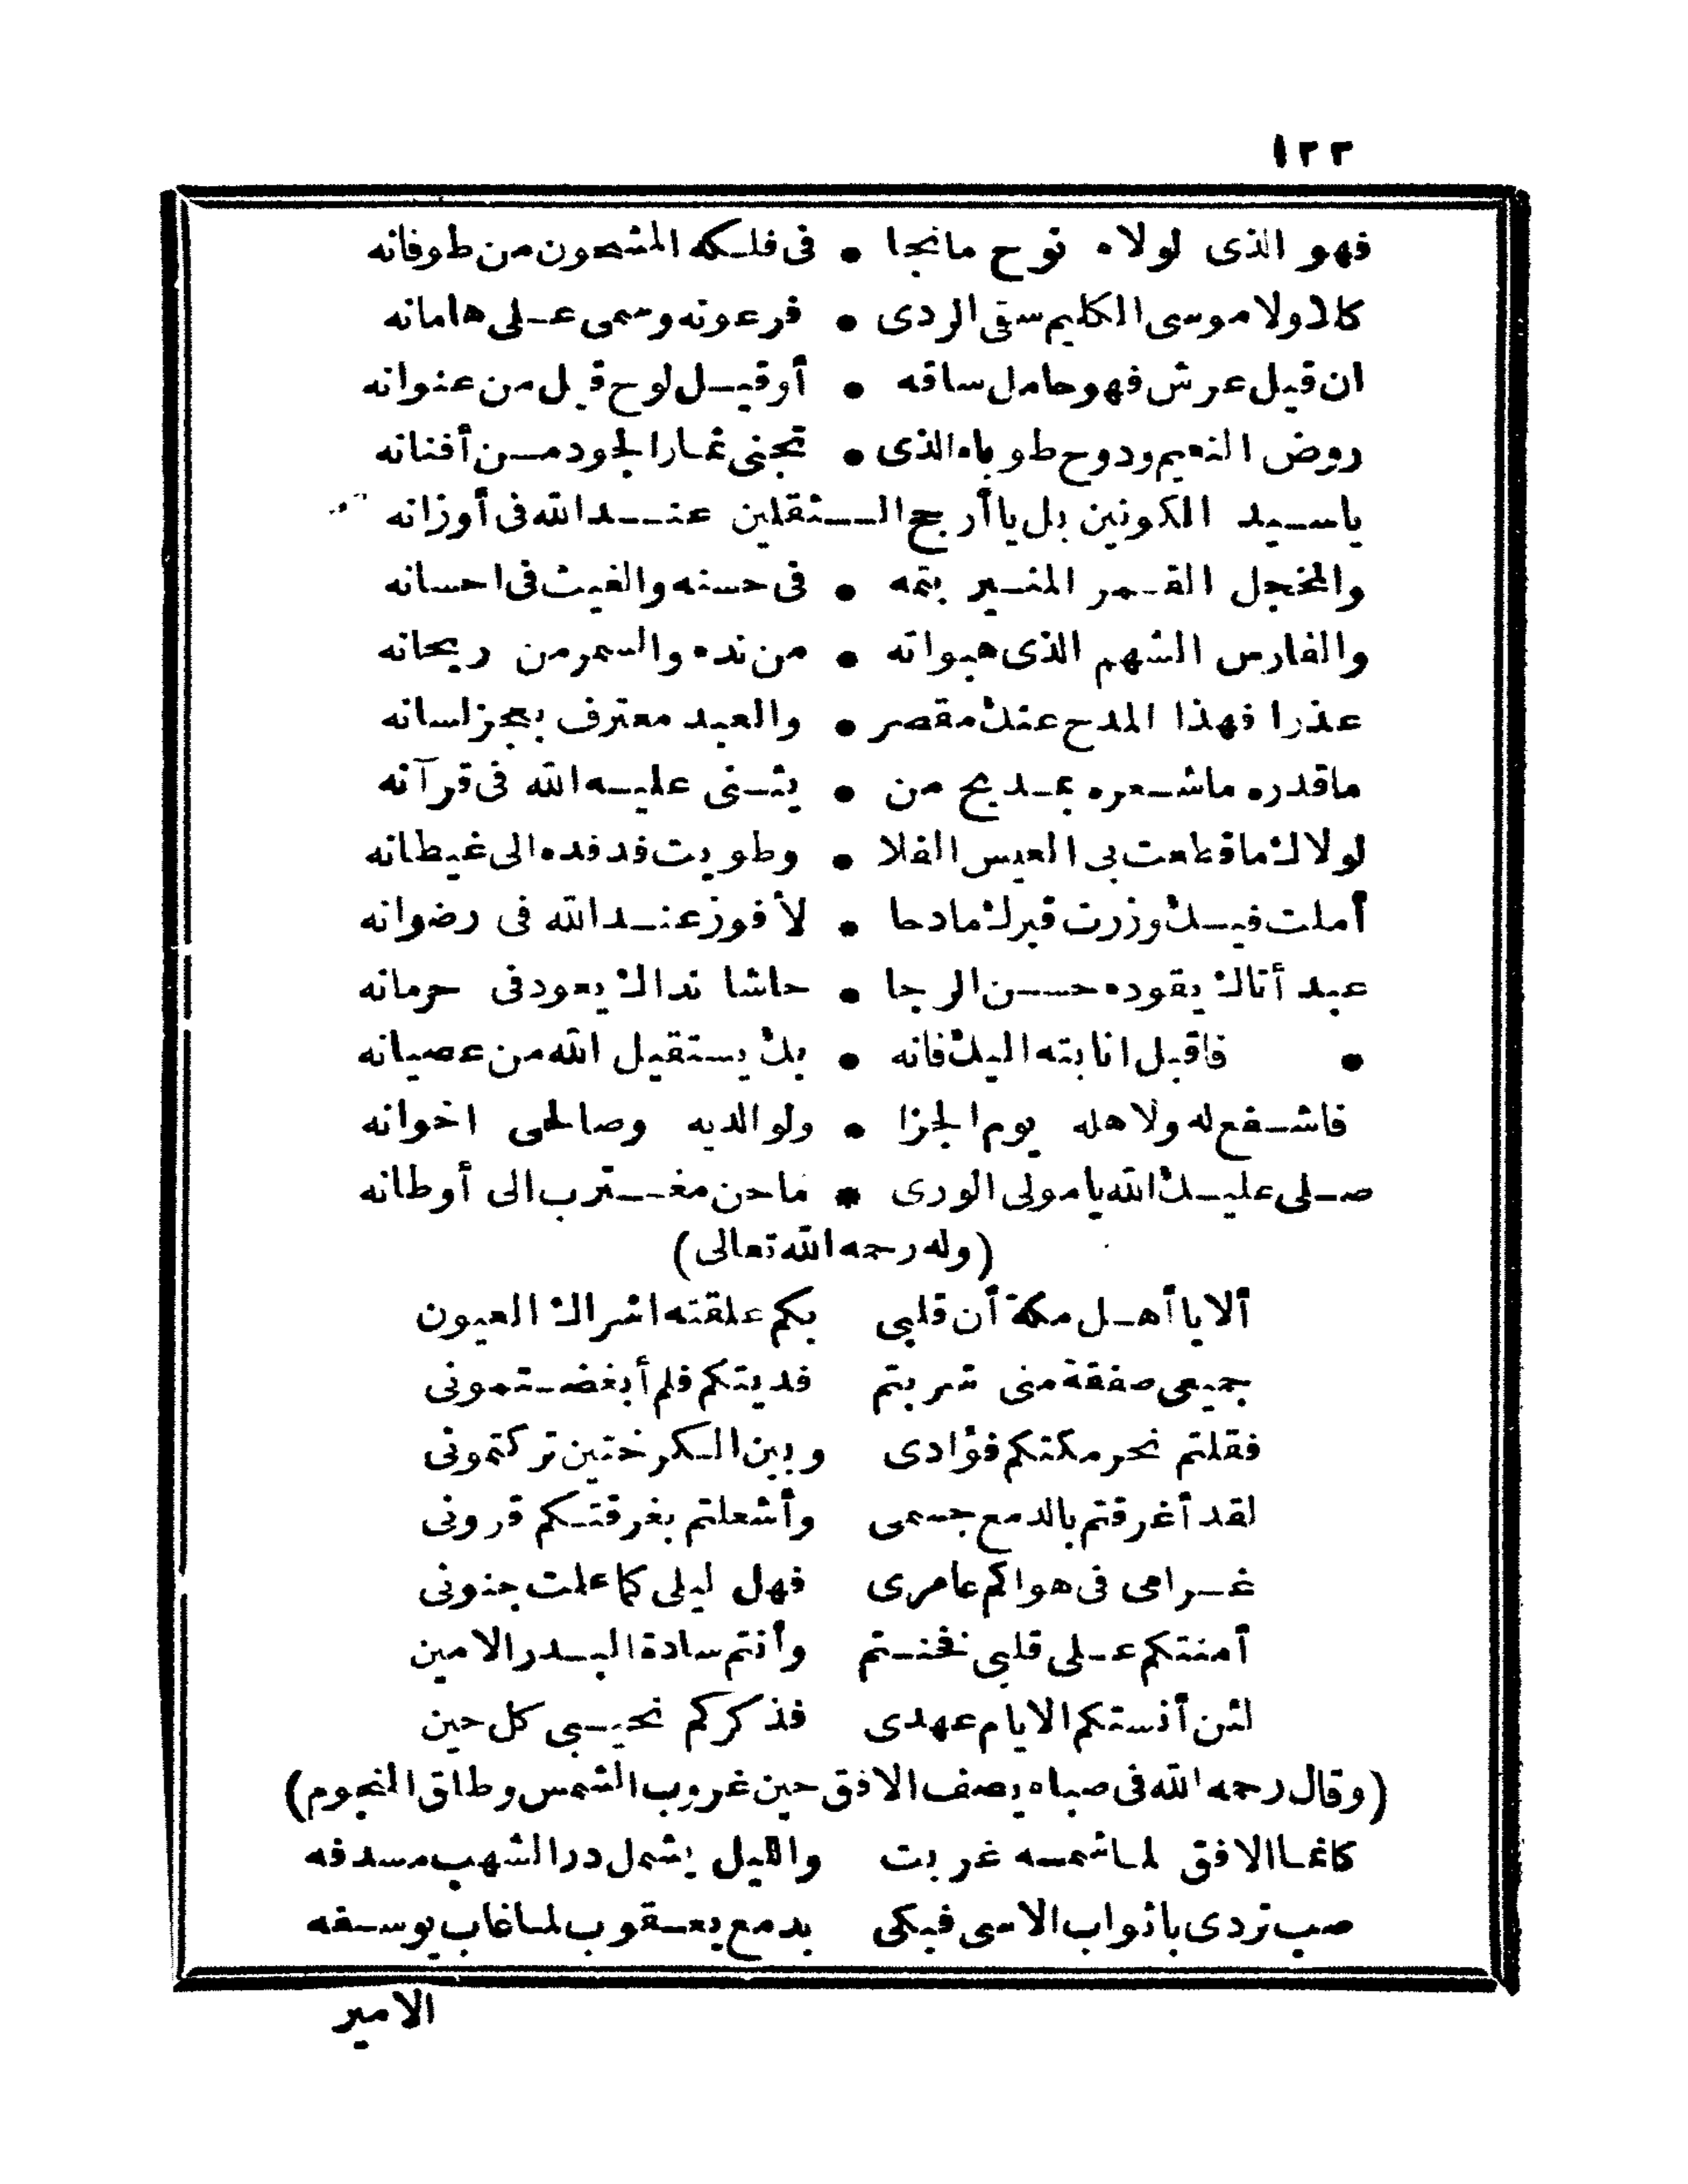 ١٢٢
فهو الذى لولاه نوح مانجا • فى فلكه المشحون من طوفانه
كلا ولا موسى الكليم سقى الردى • فرعونه وسمى على هامانه
ان قيل عرش فهو حامل ساقه • أو قيل لوح قيل من عنوانه
روض النعيم ودوح طوباه الذى • تجنى ثمار الجود من أفنانه
ياسيد الكونين بل يا أرجح الثقلين عند الله فى أوزانه
والمخجل القمر المنير بتمه • فى حسنه والغيث فى احسانه
والفارس الشهم الذى هبواته • من نده والسمر من ريحانه
عذرا فهذا المدح عنك مقصر • والعبد معترف بعجز لسانه
ماقدره ماشعره بمديح من • يثنى عليه الله فى قرآنه
لولاك ماقطعت بى العيس الفلا • وطويت فدفده الى غيطانه
أملت فيك وزرت قبرك مادحا • لأفوز عند الله فى رضوانه
عبد أتاك يقوده حسن الرجا • حاشا نداك يعود فى حرمانه
• فاقبل انابته اليك فانه • بك يستقيل الله من عصيانه
فاشفع له ولاهله يوم الجزا • ولوالديه وصالحى اخوانه
صلى عليك الله يا مولى الورى * ماحن مغترب الى أوطانه
(وله رحمه الله تعالى)
ألا يا أهل مكة أن قلبى بكم علقته اشراك العيون
جميعى صفقة منى شريتم فديتكم فلم أبغضتمونى
فقلتم نحر مكتكم فؤادى وبين الكرختين تركتمونى
لقد أغرقتم بالدمع جسمى وأشعلتم بغرقتكم قرونى
غرامى فى هواكم عامرى فهل ليلى كما علت جنونى
أمنتكم على قلبى فخنتم وأنتم سادة البلد الامين
لئن أنستكم الايام عهدى فذكركم نحيبى كل حين
(وقال رحمه الله فى صباه يصف الافق حين غروب الشمس وطلق النجوم)
كانما الافق لما شمسه غربت والليل يشمل در الشهب مسدفه
صب تردى باثواب الاسى فبكى بدمع يعقوب لما غاب يوسفه
الامير